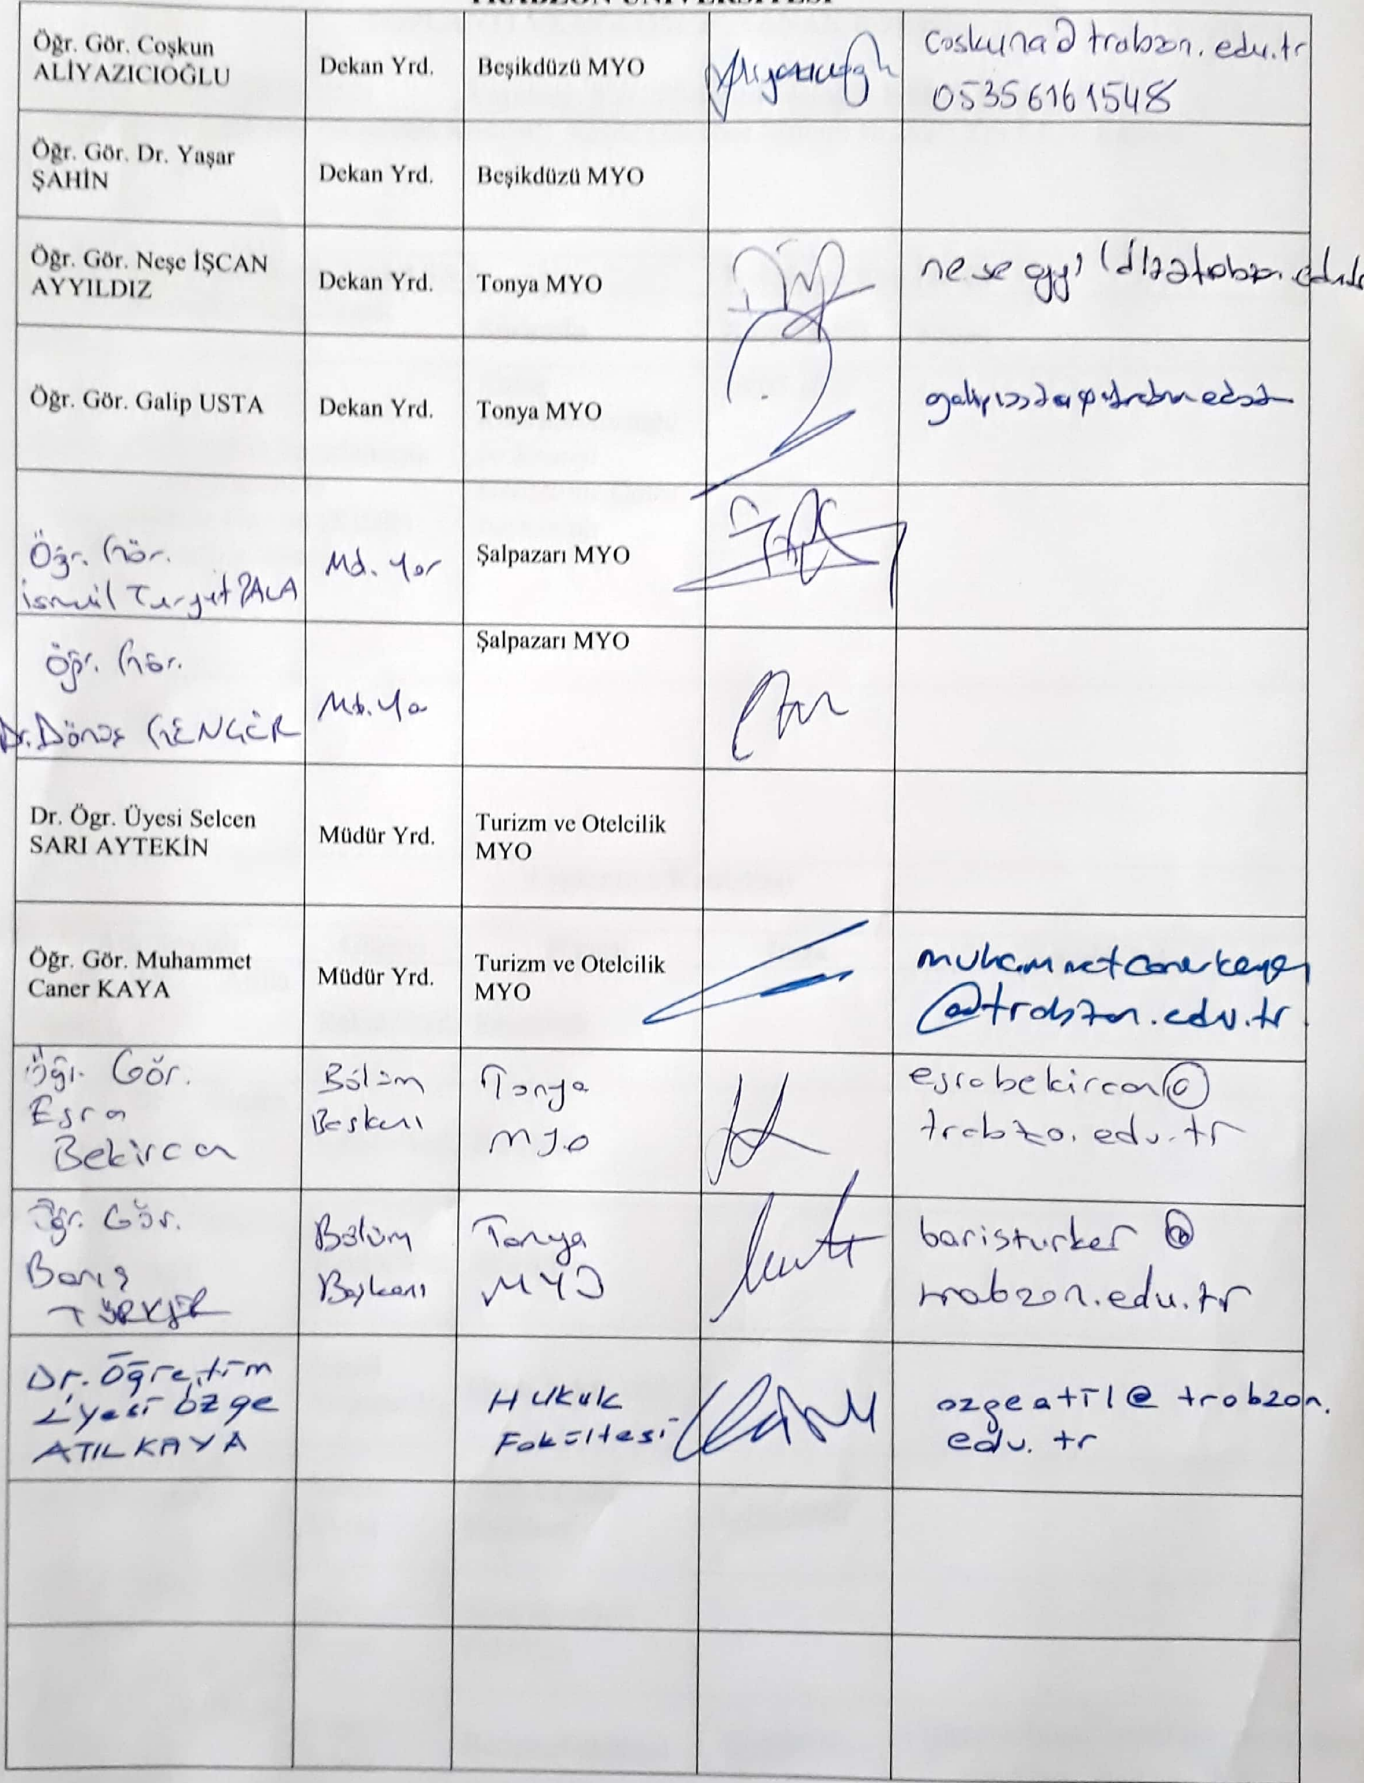 TRABZON ÜNİVERSİTESİ
Öğr. Gör. Coşkun
ALİYAZICIOĞLU
Dekan Yrd.
Beşikdüzü MYO
coskuna@trabzon.edu.tr
05356161548
Öğr. Gör. Dr. Yaşar
ŞAHİN
Dekan Yrd.
Beşikdüzü MYO
Öğr. Gör. Neşe İŞCAN
AYYILDIZ
Dekan Yrd.
Tonya MYO
Öğr. Gör. Galip USTA
Dekan Yrd.
Tonya MYO
Öğr. Gör.
İsmail Turgut PALA
Md. Yar
Şalpazarı MYO
Öğr. Gör.
Dr. Dönüş GENGÊR
Md. Ya
Şalpazarı MYO
Dr. Ögr. Üyesi Selcen
SARI AYTEKİN
Müdür Yrd.
Turizm ve Otelcilik
MYO
Öğr. Gör. Muhammet
Caner KAYA
Müdür Yrd.
Turizm ve Otelcilik
MYO
muhammetcanerkaya
@trabzon.edu.tr
Öğr. Gör.
Esra
Bekircan
Bölüm
Başkanı
Tonya
MYO
esrabekircan@
trabzo.edu.tr
Öğr. Gör.
Barış
TÜRKER
Bölüm
Başkanı
Tonya
MYO
baristurker @
trabzon.edu.tr
Dr. Öğretim
Üyesi Özge
ATILKAYA
Hukuk
Fakültesi
ozgeatil@trabzon.
edu.tr